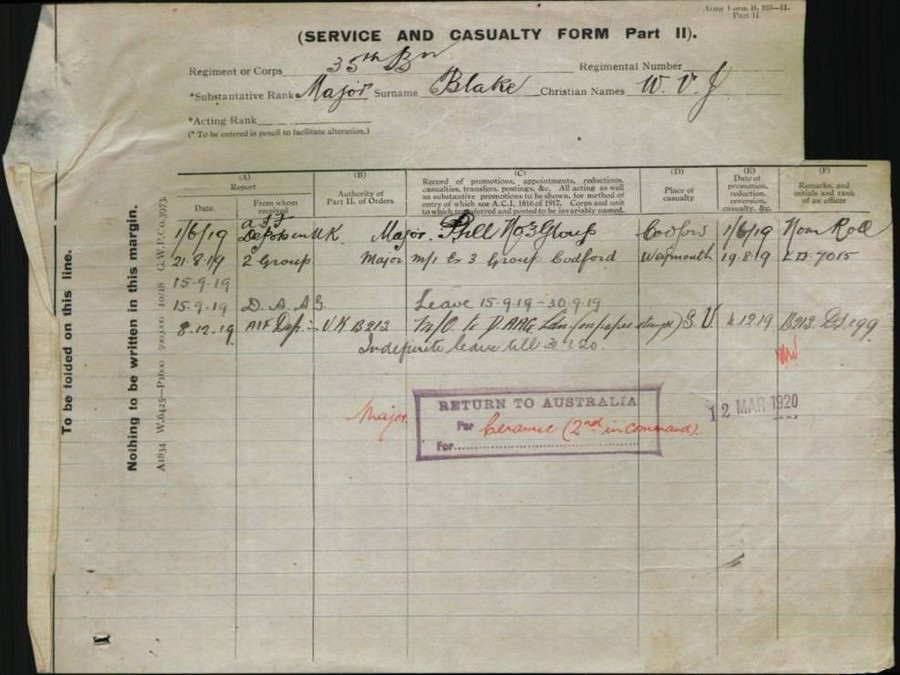 Army Form B. 103—II.
Part II.
(SERVICE AND CASUALTY FORM Part II).
Regiment or Corps 35th Bn Regimental Number
*Substantive Rank Major Surname Blake Christian Names W. V. J
*Acting Rank
(* To be entered in pencil to facilitate alteration.)
To be folded on this line.
Nothing to be written in this margin.
(A)
Report
Date.
From whom received
(B)
Authority of Part II. of Orders
(C)
Record of promotions, appointments, reductions,
casualties, transfers, postings, &c. All acting as well
as substantive promotions to be shown, for method of
entry of which see A.C.I. 1816 of 1917. Corps and unit
to which transferred and posted to be invariably named.
(D)
Place of casualty
(E)
Date of promotion, reduction, reversion, casualty, &c.
(F)
Remarks, and initials and rank of an officer
1/6/19 Depots in U.K. Major. No 3 Group Codford 1/6/19 Nom Roll
21.8.19 2 Group Major m/i Ex 3 Group Codford Weymouth 19.8.19 7015
15-9-19
15-9-19 D.A.A.G. Leave 15-9-19-30-9-19
8.12.19 AIF Dep: UK B213 M/O to DAAG Ldn 12.19 B213
Indefinite leave till 31.1.20.
Major
RETURN TO AUSTRALIA
Per Ceramic (2nd in Command).
For
12 MAR 1920